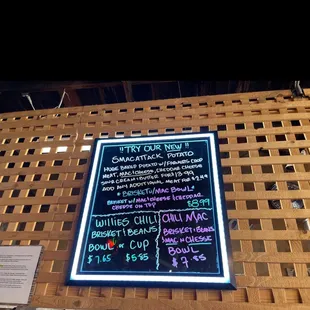 "TRY OUR NEW"
SMACATTACK POTATO
HUGE BAKED POTATO W/FARMERS CHOP
MEAT, MAC&CHEESE, CHEDDAR CHEESE
SOUR CREAM & BUTTER FOR 13.99
ADD ANY ADDITIONAL MEAT FOR $2.49
* BRISKET/MAC BOWL *
BRISKET W/MAC&CHEESE & CHEDDAR
CHEESE ON TOP $8.99
WILLIES CHILI
BRISKET & BEANS
BOWL OR CUP
$7.65 $5.85
CHILI MAC
BRISKET & BEANS
MAC N CHEESE
BOWL
$7.85